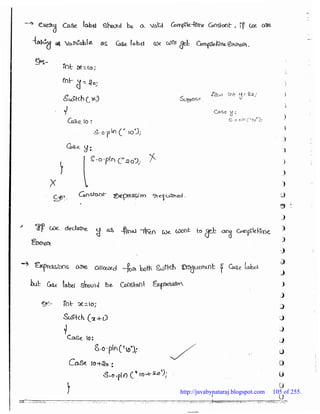 → every Case label should be a valid Compile-time Constant, if we are
taking a variable as Case label we will get CompileTimeError.
Eg:-
int x=10;
int y=20;
Switch(x)
{
Case 10:
S.o.pln("10");
Case y:
S.o.pln("20");
}
X
X
Suppose
final int y=20;
Case y:
C.E:- Constant Expression required.
If we declare y as final Then we won't to get any CompileTime
Error
→ Expressions are allowed for both Switch Argument & Case label
but Case label should be Constant Expression.
Eg:-
int x=10;
Switch(x+1)
{
Case 10:
S.o.pln("10");
Case 10+20:
S.o.pln("10+20");
}
http://javabynataraj.blogspot.com 105 of 255.